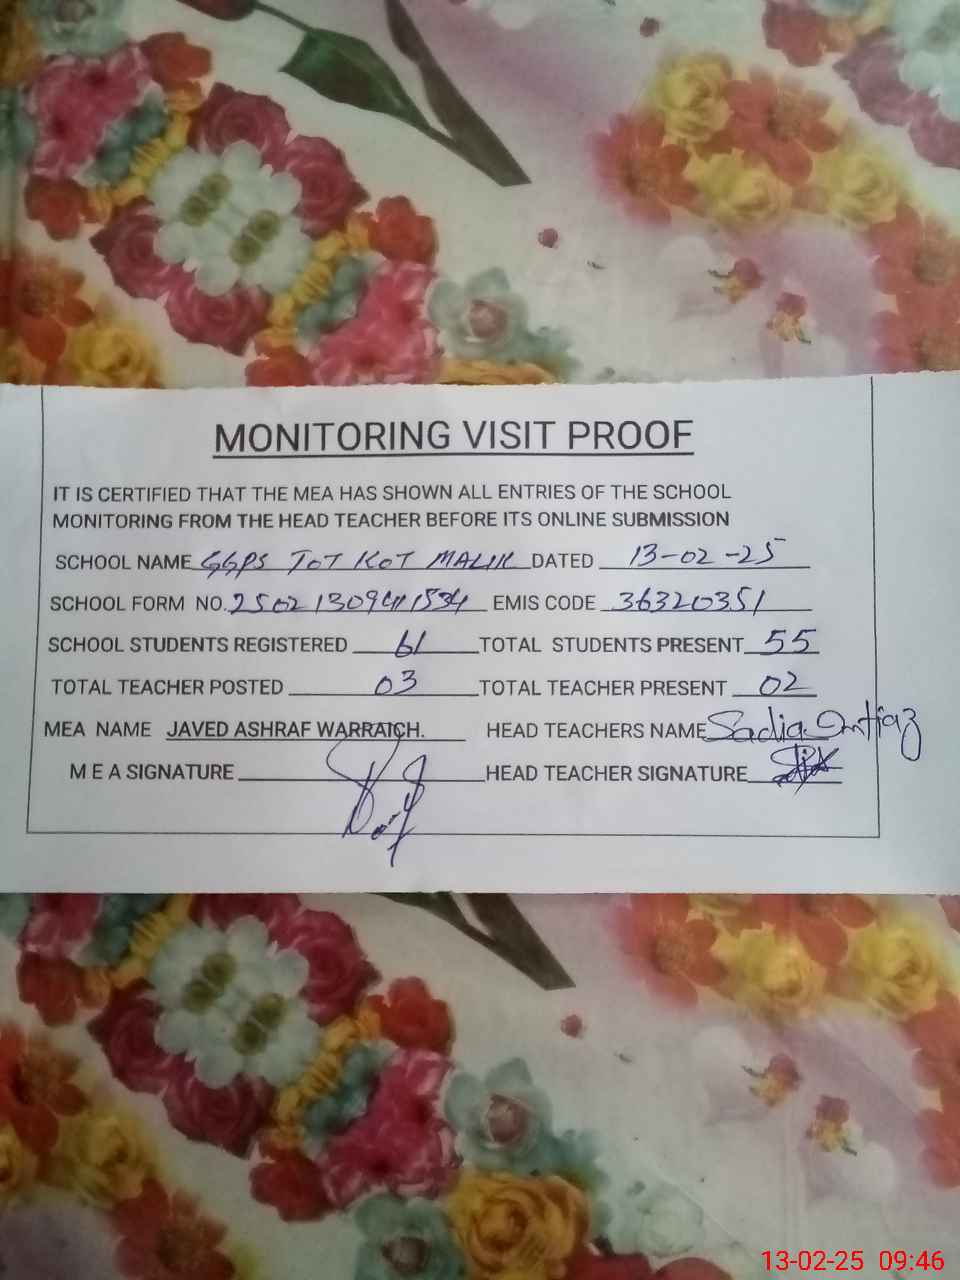 MONITORING VISIT PROOF
IT IS CERTIFIED THAT THE MEA HAS SHOWN ALL ENTRIES OF THE SCHOOL
MONITORING FROM THE HEAD TEACHER BEFORE ITS ONLINE SUBMISSION
SCHOOL NAME GGPS TOT KOT MALIK DATED 13-02-25
SCHOOL FORM NO. EMIS CODE 36320351
SCHOOL STUDENTS REGISTERED 61 TOTAL STUDENTS PRESENT 55
TOTAL TEACHER POSTED 03 TOTAL TEACHER PRESENT 02
MEA NAME JAVED ASHRAF WARRAICH. HEAD TEACHERS NAME Sadia Imtiaz
M E A SIGNATURE HEAD TEACHER SIGNATURE
13-02-25 09:46